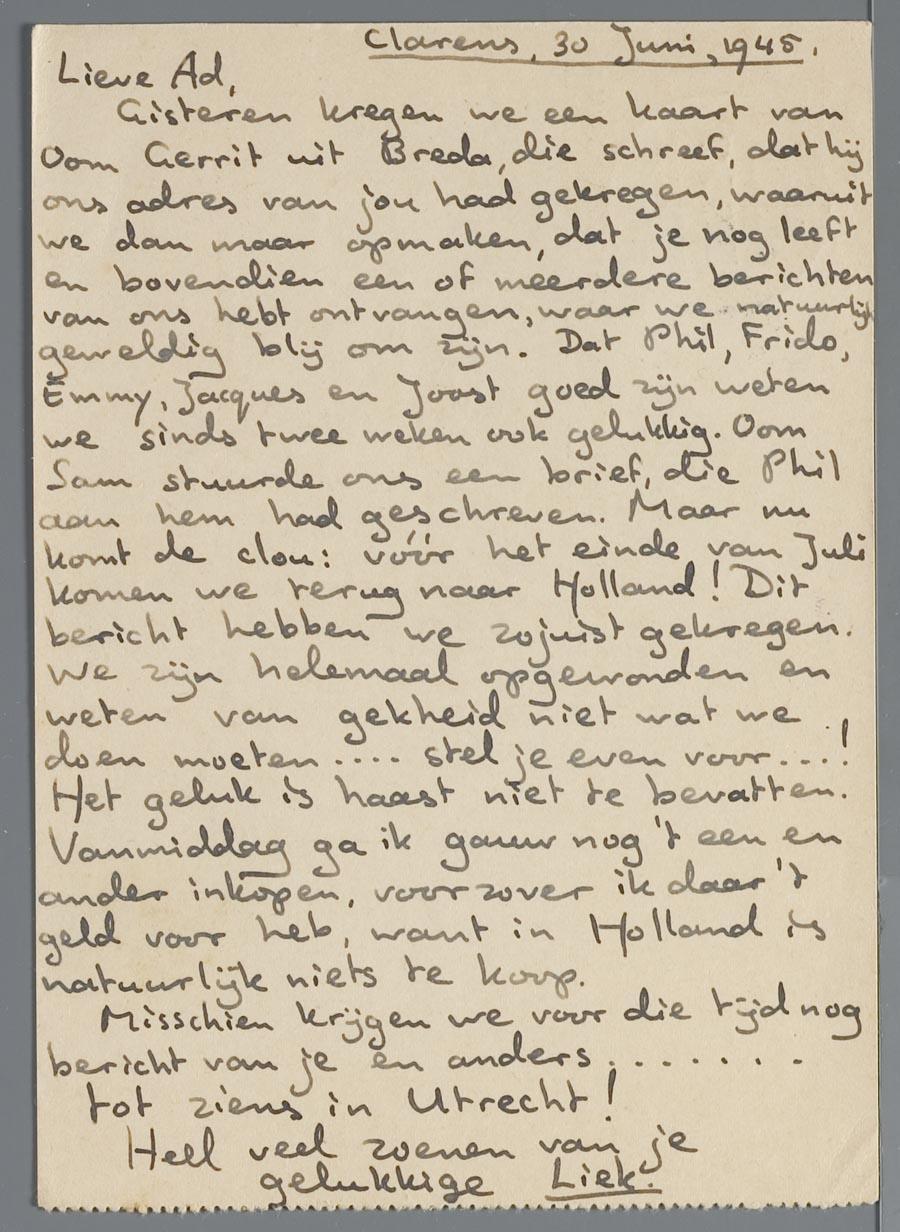 Clarens, 30 Juni, 1945.
Lieve Ad,
Gisteren kregen we een kaart van
Oom Gerrit uit Breda, die schreef, dat hij
ons adres van jou had gekregen, waaruit
we dan maar opmaken, dat je nog leeft
en bovendien een of meerdere berichten
van ons hebt ontvangen, waar we natuurlijk
geweldig blij om zijn. Dat Phil, Frido,
Emmy, Jacques en Joost goed zijn weten
we sinds twee weken ook gelukkig. Oom
Sam stuurde ons een brief, die Phil
aan hem had geschreven. Maar nu
komt de clou: vóór het einde van Juli
komen we terug naar Holland! Dit
bericht hebben we zojuist gekregen.
We zijn helemaal opgewonden en
weten van gekheid niet wat we
doen moeten .... stel je even voor ....!
Het geluk is haast niet te bevatten.
Vanmiddag ga ik gauw nog 't een en
ander inkopen, voorzover ik daar 't
geld voor heb, want in Holland is
natuurlijk niets te koop.
Misschien krijgen we voor die tijd nog
bericht van je en anders ........
tot ziens in Utrecht!
Heel veel zoenen van je
gelukkige Liek.